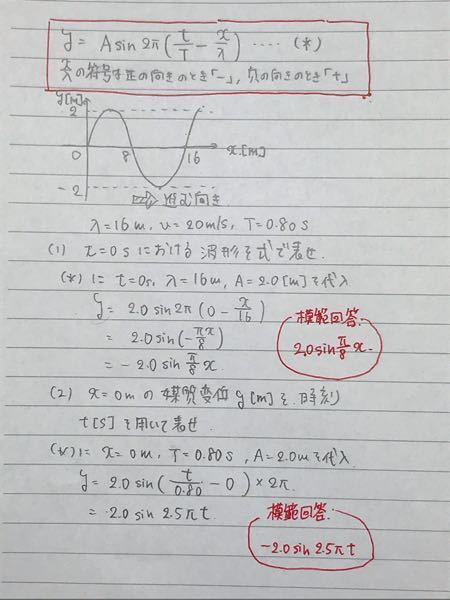 y = A sin 2π(t/T - x/λ) .... (*)
x/λの符号は正の向きのとき「-」, 負の向きのとき「+」
y[m]
2
0
8
16
x[m]
-2
進む向き
λ=16m, v=20m/s, T=0.80s
(1) t=0sにおける波形を式で表せ.
(*)に t=0s, λ=16m, A=2.0[m]を代入
y = 2.0 sin 2π(0 - x/16)
= 2.0 sin(-πx/8)
= -2.0 sin π/8 x
模範回答
2.0 sin π/8 x.
(2) x=0mの媒質変位y[m]を,時刻
t[s]を用いて表せ
(*)に x=0m, T=0.80s, A=2.0mを代入
y = 2.0 sin(t/0.80 - 0)×2π
= 2.0 sin 2.5πt
模範回答
-2.0 sin 2.5πt